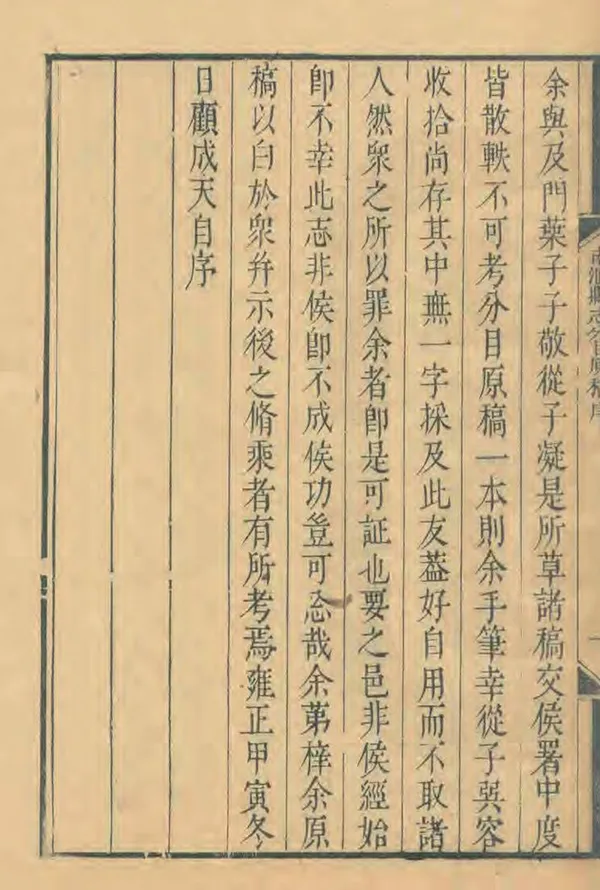 余與及門葉子子敬從子凝是所草諸稿交侯署中度
皆散軼不可考分目原稿一本則余手筆幸從子巽容
收拾尚存其中無一字採及此友葢好自用而不取諸
人然衆之所以罪余者卽是可証也要之邑非侯經始
卽不幸此志非侯卽不成侯功豈可忘哉余第梓余原
稿以白於衆并示後之脩乘者有所考焉雍正甲寅冬
日顧成天自序
南滙縣志分目原稿序